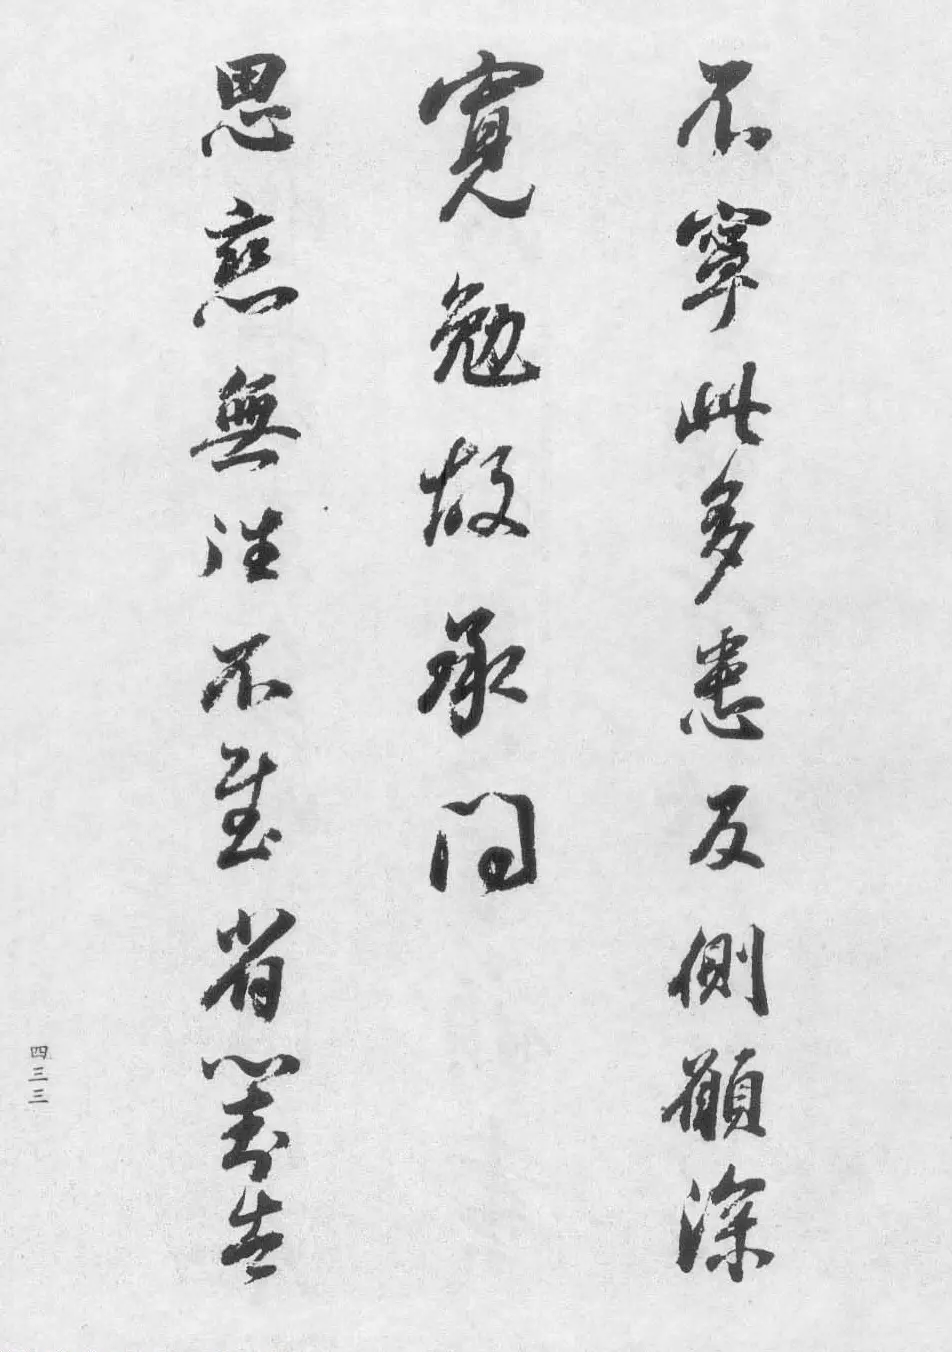 不寧此多恙反側願深
寬勉故承問
思戀無往不至省告
四三三